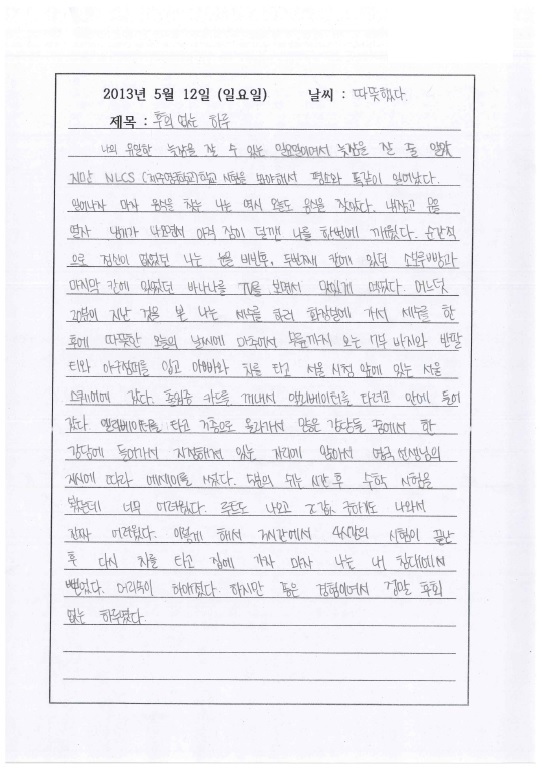 2013년 5월 12일 (일요일) 날씨 : 따뜻했다.
제목 : 후회 없는 하루
나의 유일한 늦잠을 잘 수 있는 일요일이여서 늦잠을 잔 줄 알았
지만 NLCS (제주영국학교) 시험을 봐야해서 평소와 똑같이 일어났다.
일어나자 마자 음식을 찾는 나는 역시 오늘도 음식을 찾았다. 냉장고 문을
열자 냉기가 나오면서 아직 잠이 덜깬 나를 한번에 깨웠다. 순간적
으로 정신이 없었던 나는 눈을 비빈후, 두번째 칸에 있던 소보루빵과
마지막 칸에 있었던 바나나를 TV를 보면서 맛있게 먹었다. 어느덧
20분이 지난 것을 본 나는 세수를 하러 화장실에 가서 세수를 한
후에 따뜻한 오늘의 날씨에 마춰서 무릎까지 오는 7부 바지와 반팔
티와 야구점퍼를 입고 아빠와 차를 타고 서울 시청 앞에 있는 서울
스퀘어에 갔다. 출입증 카드를 꺼내서 엘리베이터를 타려고 안에 들어
갔다 엘리베이터를 타고 7층으로 올라가서 많은 강당들 중에서 한
강당에 들어가서 지정해져 있는 자리에 앉아서 영국 선생님의
지시에 따라 에세이를 썼다. 5분의 쉬는 시간 후 수학 시험을
봤는데 너무 어려웠다. 루트도 나오고 구하기도 나와서
진짜 어려웠다. 이렇게 해서 3시간에서 4시간의 시험이 끝난
후 다시 차를 타고 집에 가자 마자 나는 내 침대에서
뻗었다. 머리속이 하얘졌다. 하지만 좋은 경험이여서 정말 후회
없는 하루였다.